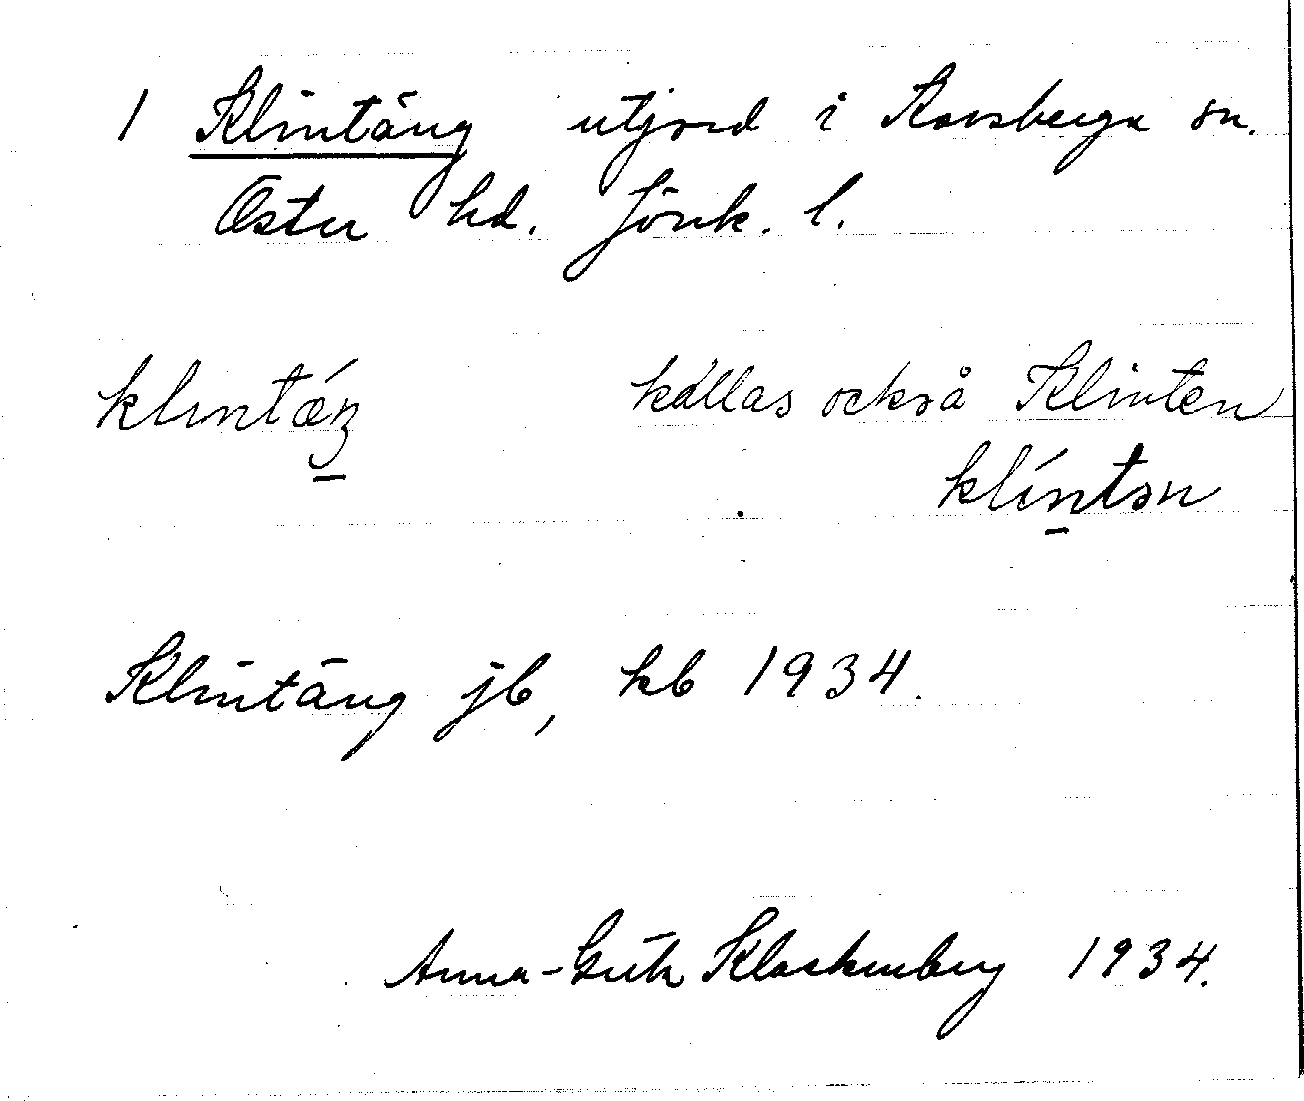 1 Klintäng utjord i Korsberga sn.
Östra hd. Jönk. l.
klıntǽŋ kallas också Klinten
klíntən
Klintäng jb, kb 1934.
Anna-Greta Klackenberg 1934.